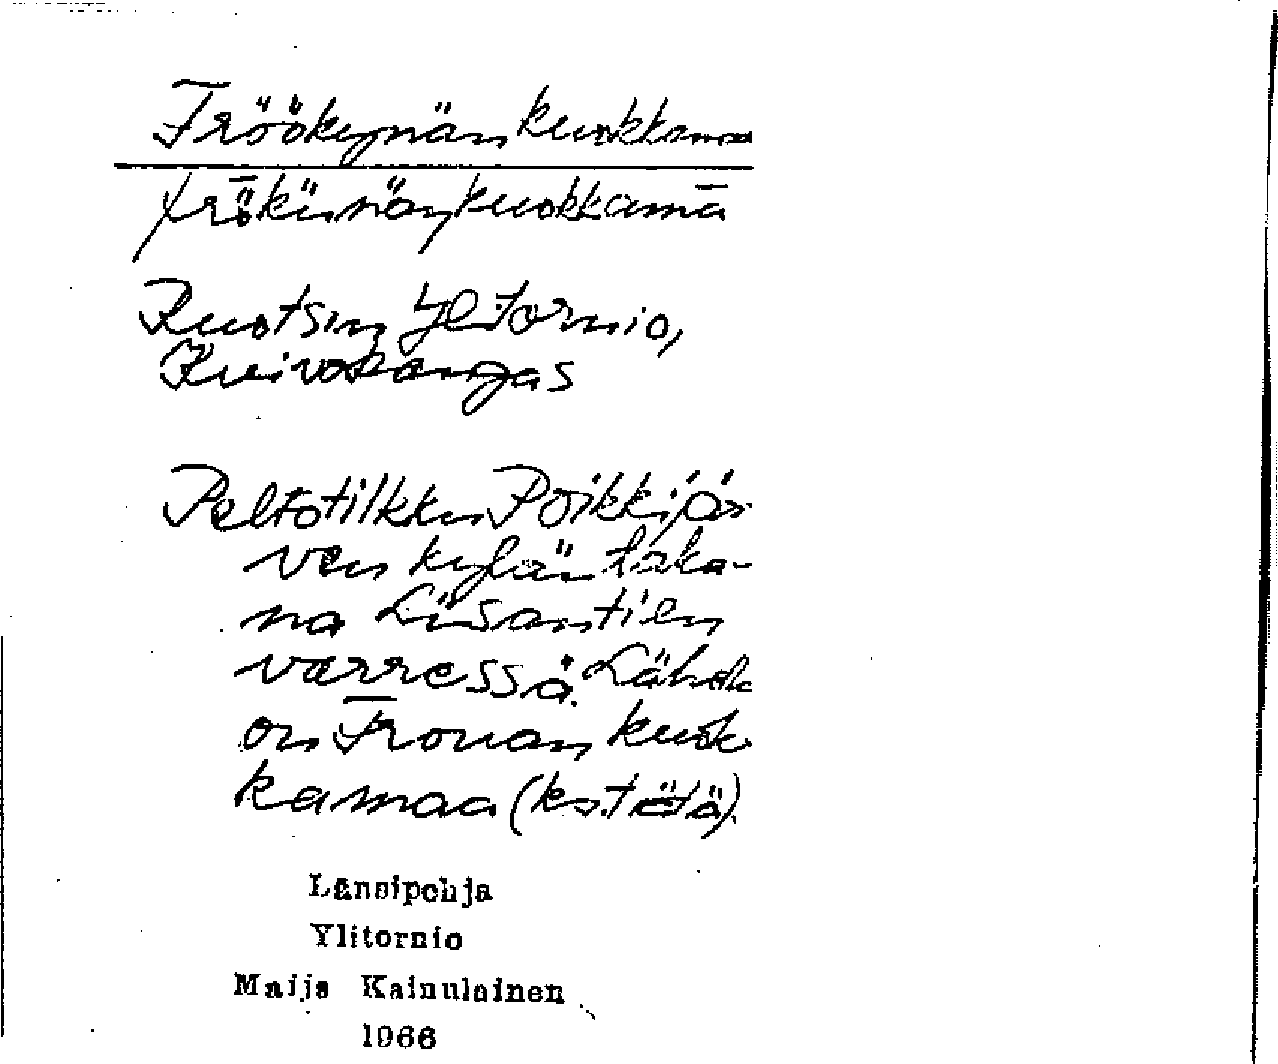 Fröökynänkuokkamaa
frȫkünäŋkuokkamā
Ruotsin Ylitornio,
Kuivakangas
Peltotilkku Poikkijär-
ven kylän taka-
na Liisantien
varressa. Lähellä
on Frouan kuok-
kamaa (ks. tätä).
Länsipohja
Ylitornio
Maija Kainulainen
1966